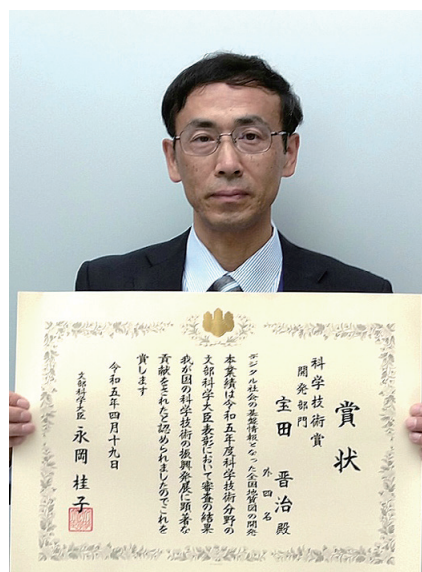 賞状
科学技術賞
開発部門
宝田晋治殿
外四名
デジタル社会の基盤情報となった全国地質図の開発
本業績は令和五年度科学技術分野の
文部科学大臣表彰において審査の結果
我が国の科学技術の振興発展に顕著な
貢献をされたと認められましたのでこれを
賞します
令和五年四月十九日
文部科学大臣 永岡桂子